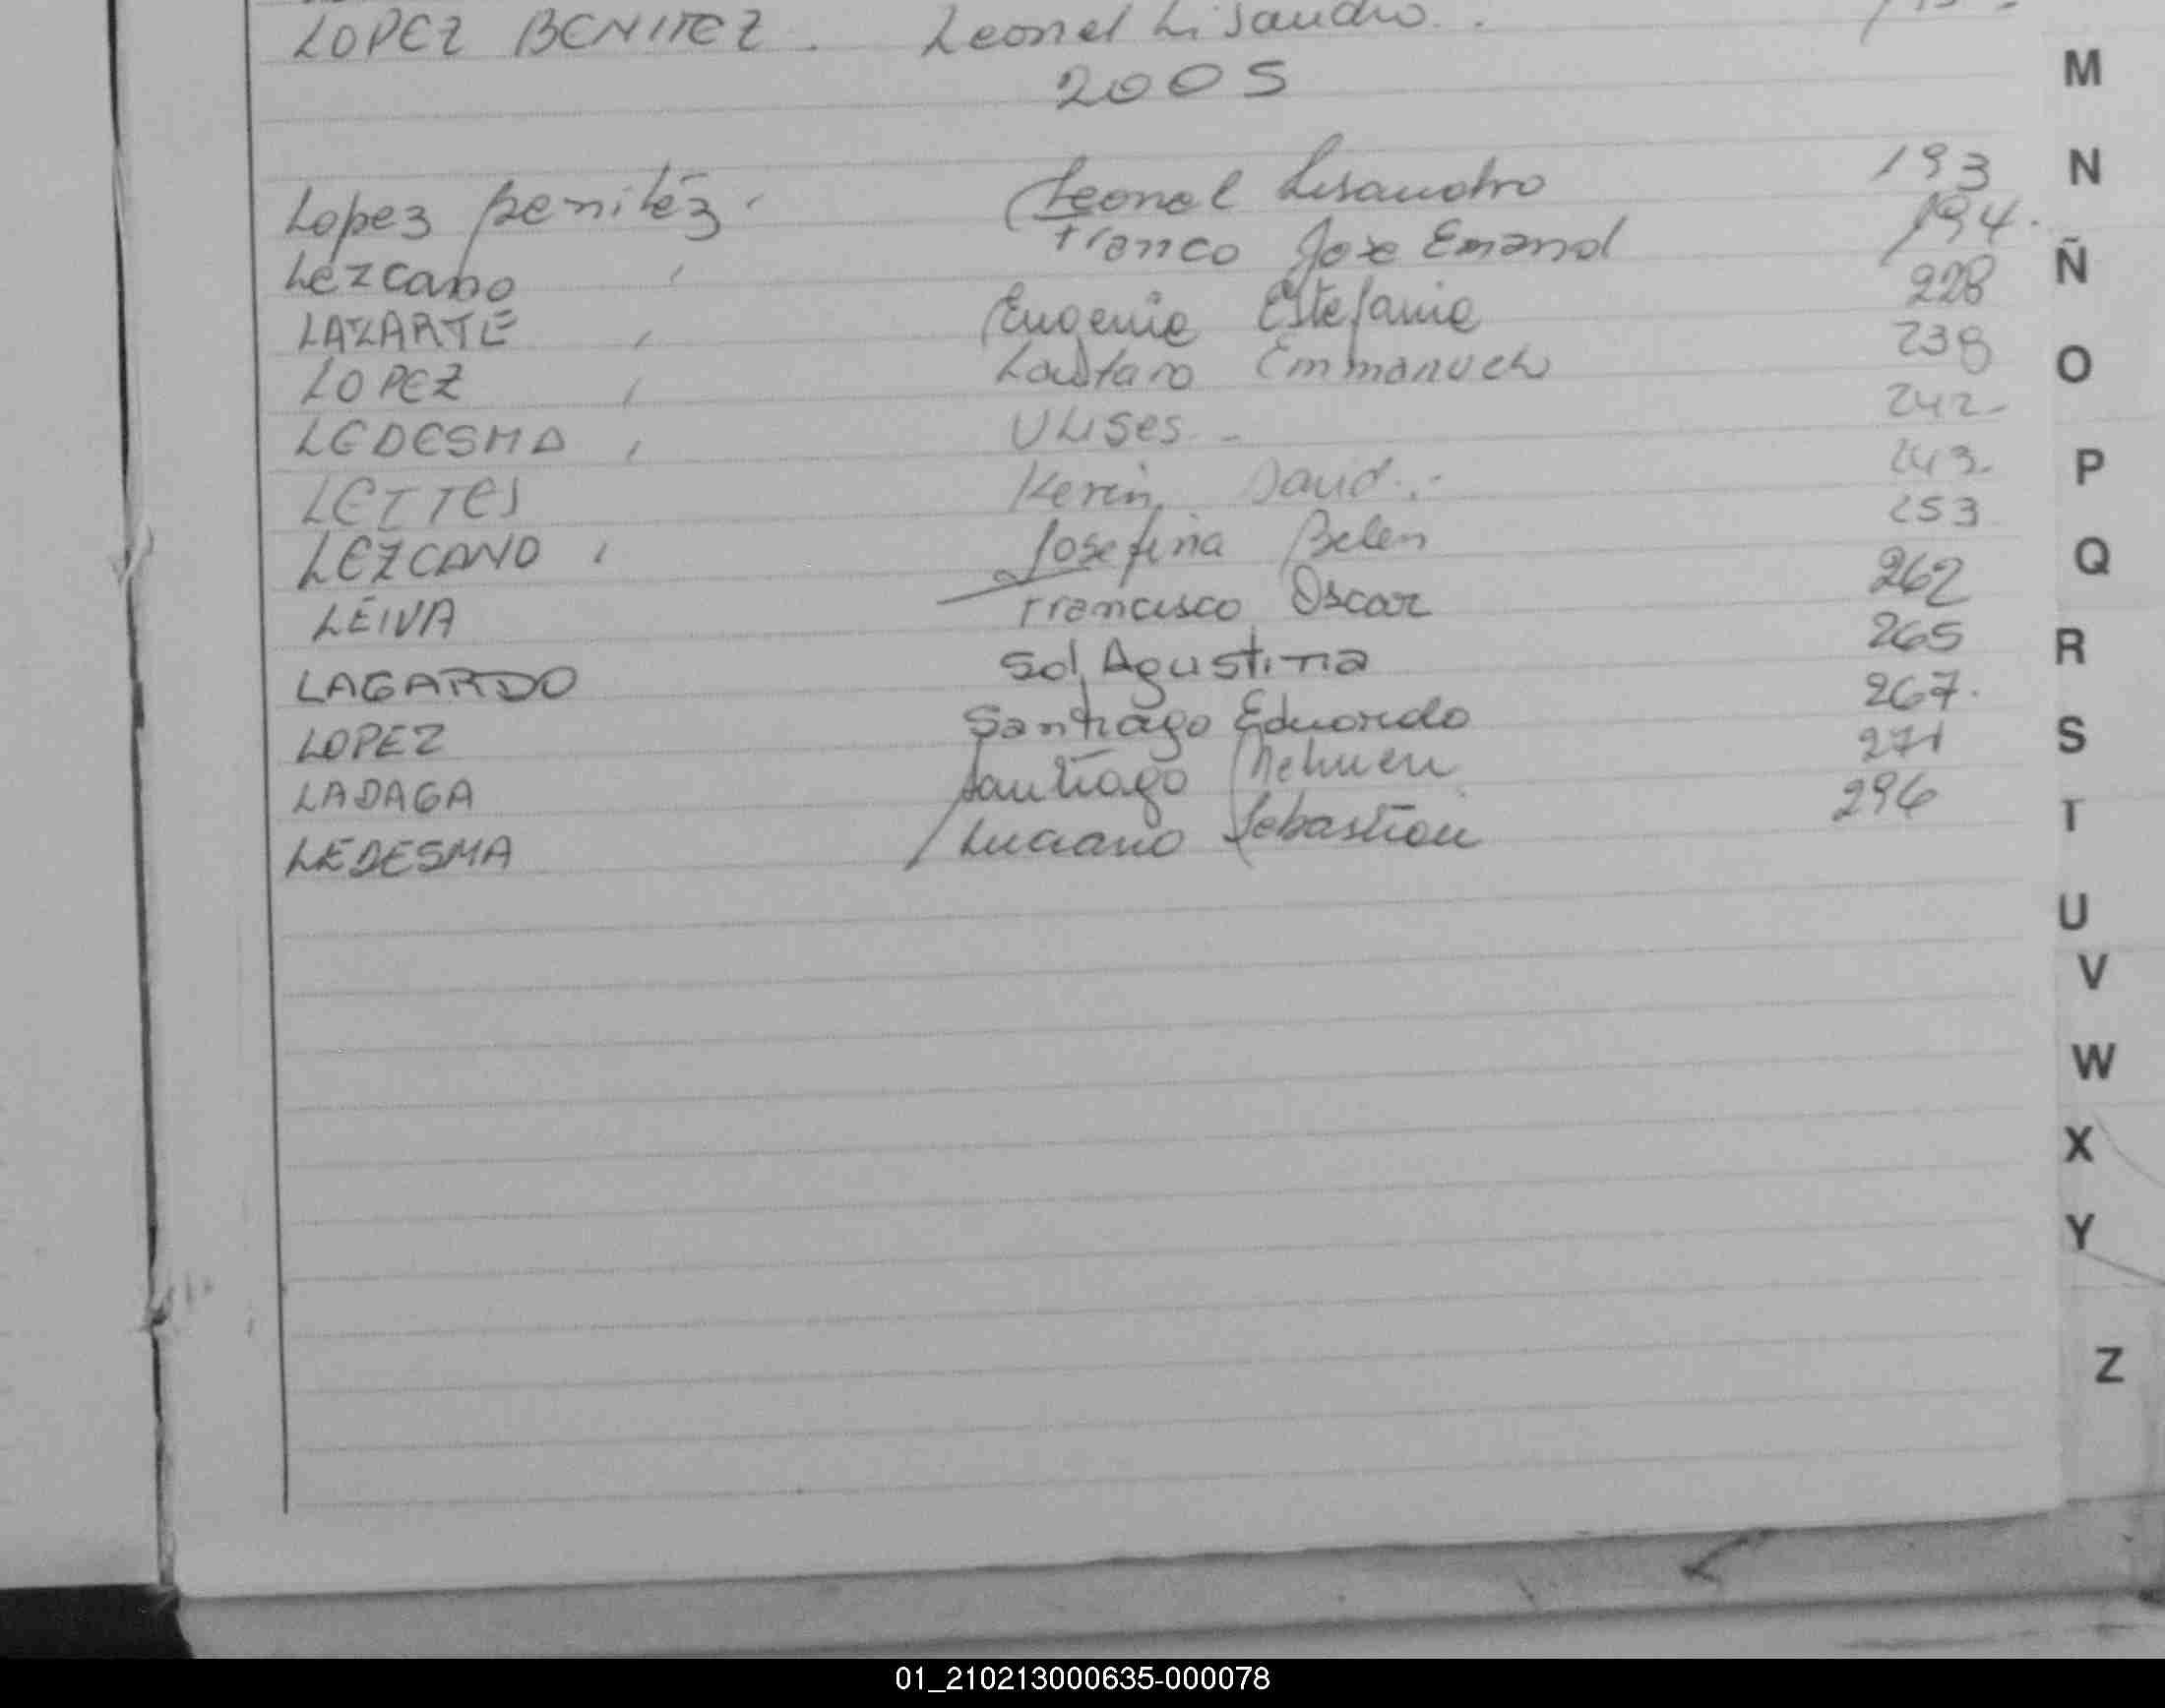 LOPEZ BENITEZ. Leonel Lisandro.
2005
Lopez Benitéz, Leonel Lisandro 193
Lezcano, Franco Jose Emanol 194.
LAZARTE, Eugenia Estefania 228
LOPEZ, Lautaro Emmanuel 239
LEDESMA, ULises - 242-
LETTES Kevin David.- 243-
LEZCANO, Josefina Belen 253
LEIVA Francisco Oscar 262
LAGARDO Sol Agustina 265
LOPEZ Santiago Eduardo 267.
LADAGA Santiago Nehuen 271
LEDESMA Luciano Sebastian 296
M
N
Ñ
O
P
Q
R
S
T
U
V
W
X
Y
Z
01_210213000635-000078